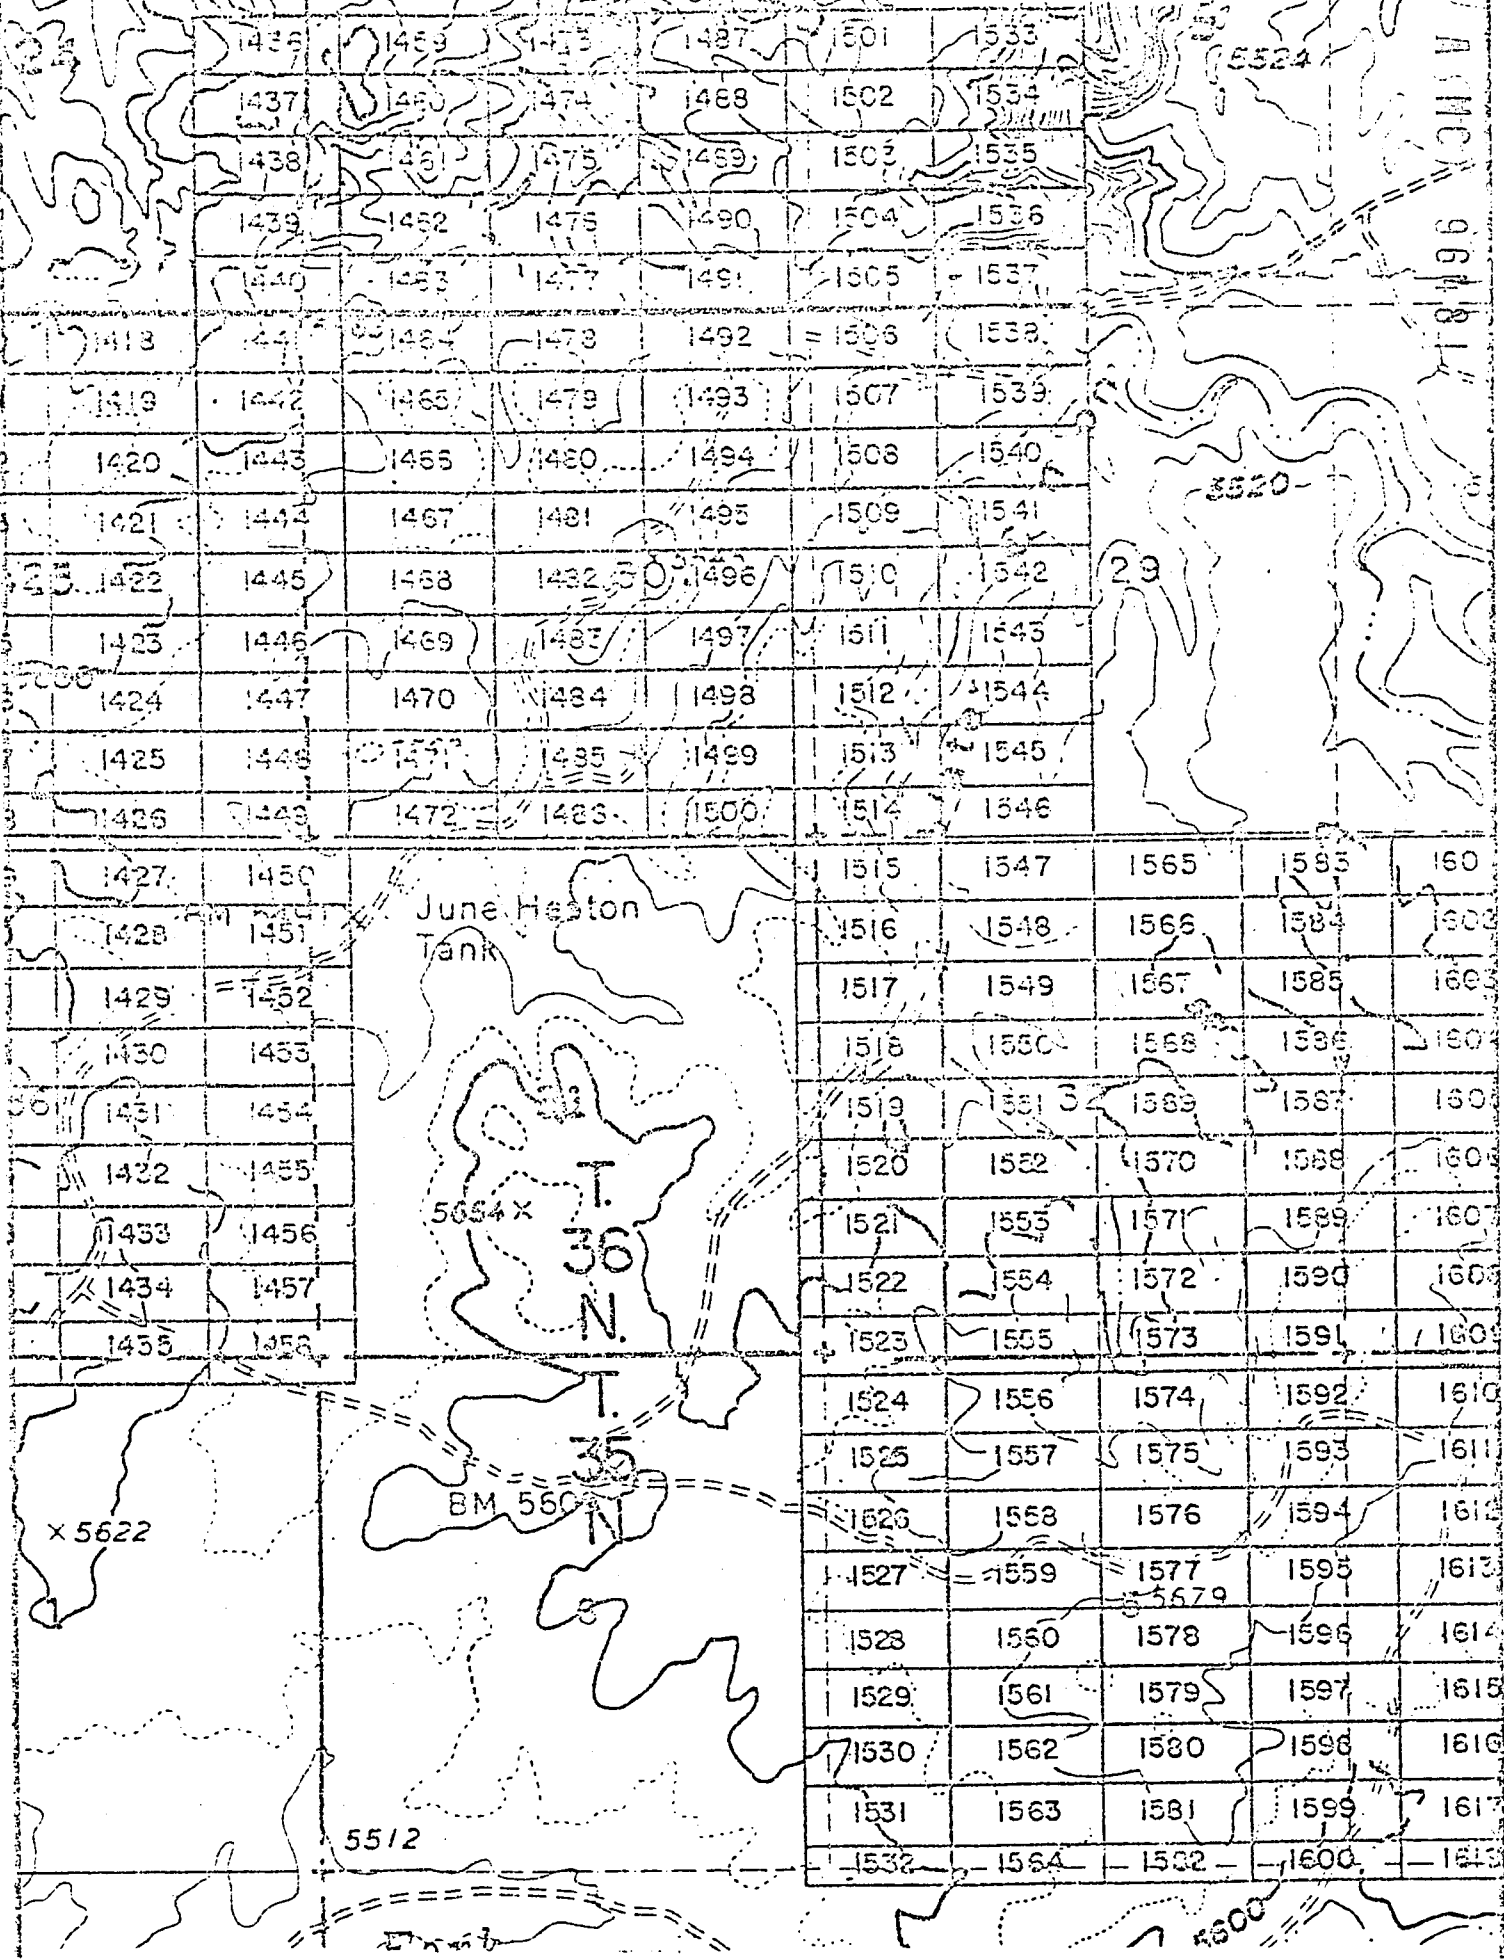 1436 1459 1473 1487 1501 1533
5524
1437 1460 1474 1488 1502 1534
1438 1461 1475 1489 1503 1535
1439 1462 1476 1490 1504 1536
1440 1463 1477 1491 1505 1537
1418 1441 1464 1478 1492 1506 1538
1419 1442 1465 1479 1493 1507 1539
1420 1443 1466 1480 1494 1508 1540
5520
1421 1444 1467 1481 1495 1509 1541
25 1422 1445 1468 1482 30 1496 1510 1542 29
1423 1446 1469 1483 1497 1511 1543
1424 1447 1470 1484 1498 1512 1544
1425 1448 1471 1485 1499 1513 1545
1426 1449 1472 1486 1500 1514 1546
1427 1450 1515 1547 1565 1583 160
June Heaton
Tank
1428 1451 1516 1548 1566 1584 160
1429 1452 1517 1549 1567 1585 160
1430 1453 1518 1550 1568 1586 160
36 1431 1454 1519 1551 32 1569 1587 160
1432 1455 1520 1552 1570 1588 160
5654 ×
T.
36
N.
1433 1456 1521 1553 1571 1589 1607
1434 1457 1522 1554 1572 1590 1608
1435 1458 1523 1555 1573 1591 1609
T.
35
N
1524 1556 1574 1592 1610
1525 1557 1575 1593 1611
BM 560
× 5622
1526 1558 1576 1594 1612
1527 1559 1577 1595 1613
5679
1528 1560 1578 1596 1614
1529 1561 1579 1597 1615
1530 1562 1580 1598 1616
1531 1563 1581 1599 1617
5512
1532 1564 1582 1600 1618
5600